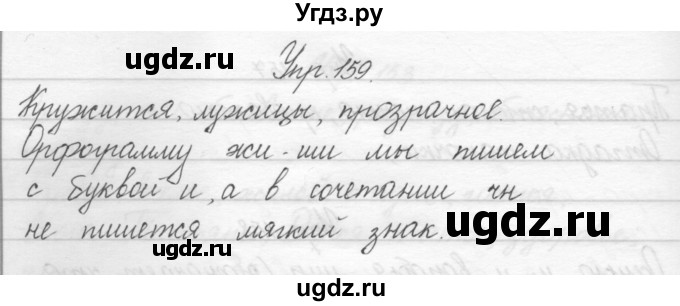 Угдз.ру
Упр. 159.
Кружится, лужицы, прозрачное.
Орфограмму жи-ши мы пишем
с буквой и, а в сочетании чн
не пишется мягкий знак.
ugdz.ru
ugdz.ru
ugdz.ru
ugdz.ru
ugdz.ru
ugdz.ru